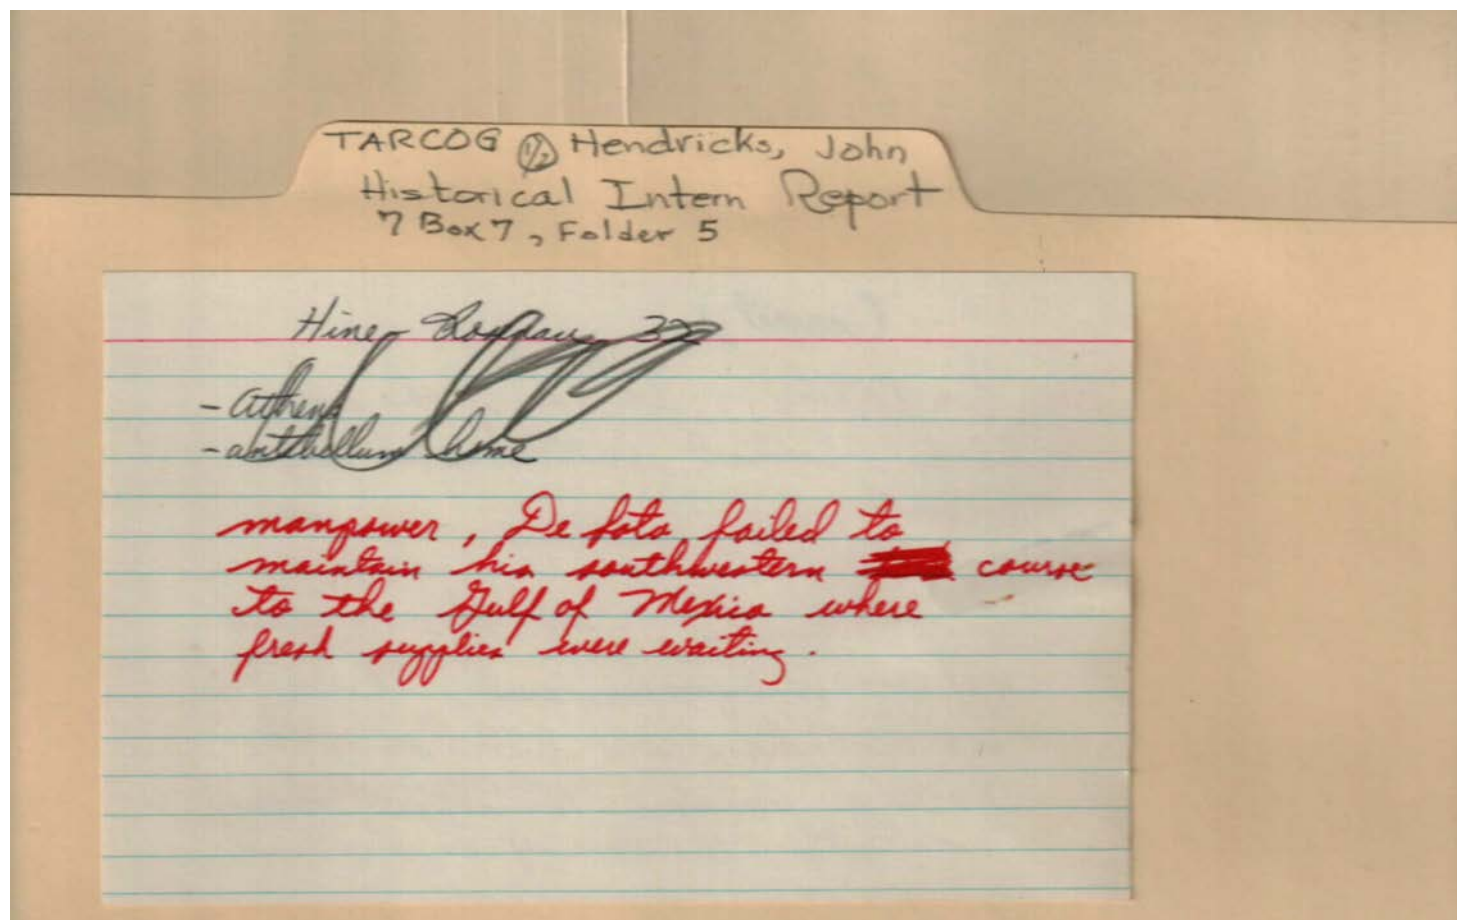 TARCOG 1/2 Hendricks, John
Historical Intern Report
7 Box 7, Folder 5
Hine
- Athens
- antibellum home
manpower, De Soto failed to
maintain his southwestern course
to the Gulf of Mexico where
fresh supplies were waiting.